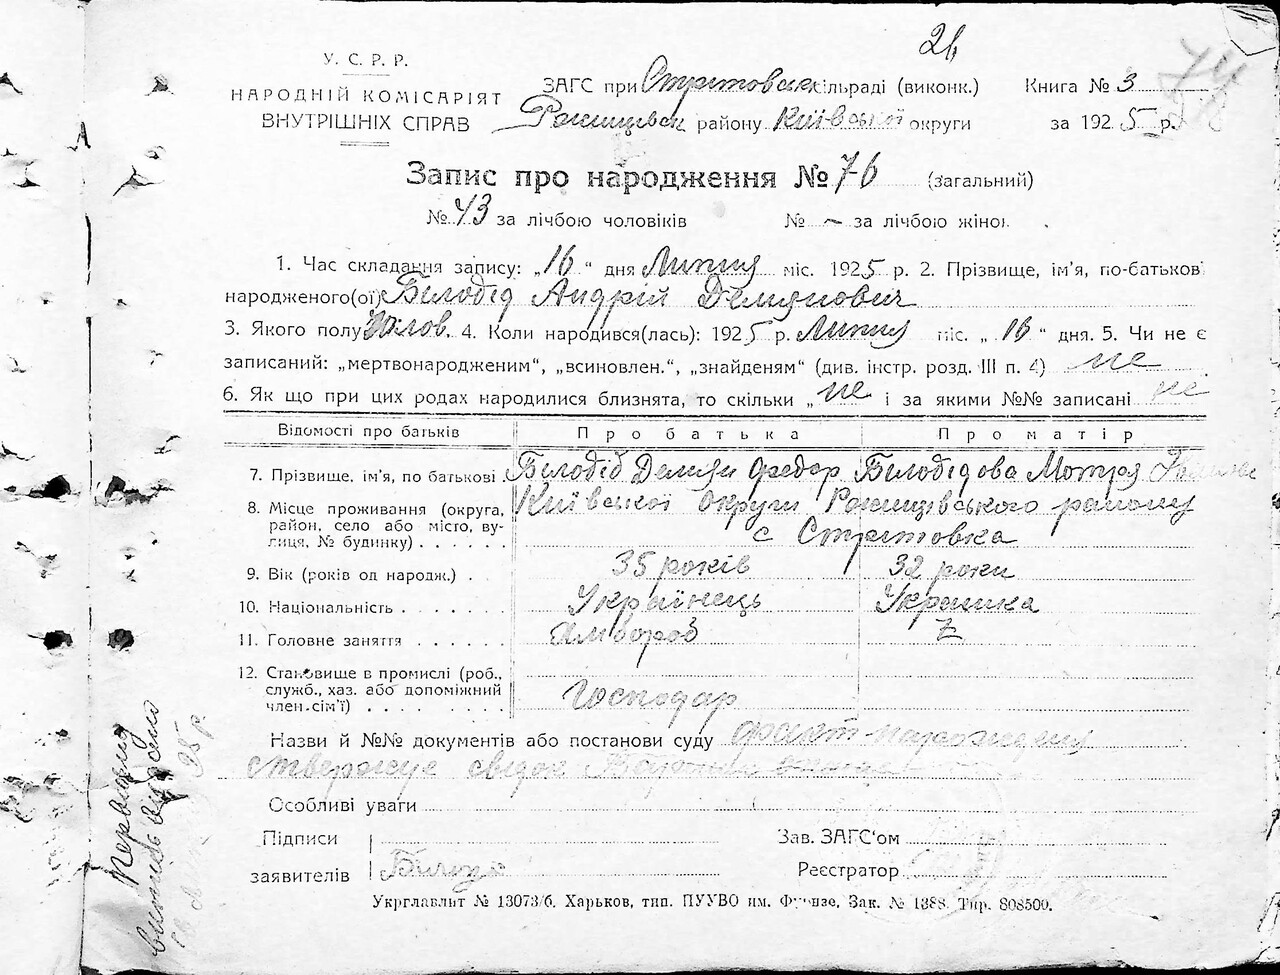 26
У. С. Р. Р.
НАРОДНІЙ КОМІСАРІЯТ
ВНУТРІШНІХ СПРАВ
ЗАГС при Стритовськ сільраді (виконк.) Книга № 3
Ржищівськ району Київської округи за 1925 р.
Запис про народження № 76 (загальний)
№ 43 за лічбою чоловіків № — за лічбою жінок
1. Час складання запису: „16“ дня Липня міс. 1925 р. 2. Прізвище, ім'я, по-батькові
народженого(ої) Білобід Андрій Демянович
3. Якого полу Чолов. 4. Коли народився(лась): 1925 р. Липня міс. „16“ дня. 5. Чи не є
записаний: „мертвонародженим“, „всиновлен.“, „знайденям“ (див. інстр. розд. III п. 4) не
6. Як що при цих родах народилися близнята, то скільки „не і за якими №№ записані не
Відомості про батьків Про батька Про матір
7. Прізвище, ім'я, по батькові Білобід Демян Федор Білобідова Мотря
8. Місце проживання (округа, район, село або місто, вулиця, № будинку) Київської округи Ржищівського району
с Стритовка
9. Вік (років од народж.) 35 років 32 роки
10. Національність Українець Украінка
11. Головне заняття Хлібороб
12. Становище в промислі (роб., служб., хаз. або допоміжний член-сім'ї) Господар
Назви й №№ документів або постанови суду факт народження
ствержує свідок
Особливі уваги
Підписи Зав. ЗАГС'ом
заявителів Білобід Реєстратор
Укрглавліт № 13073/б. Харьков, тип. ПУУВО им. Фрунзе. Зак. № 1388. Тир. 808500.
Первину
виписъ видано
25 р